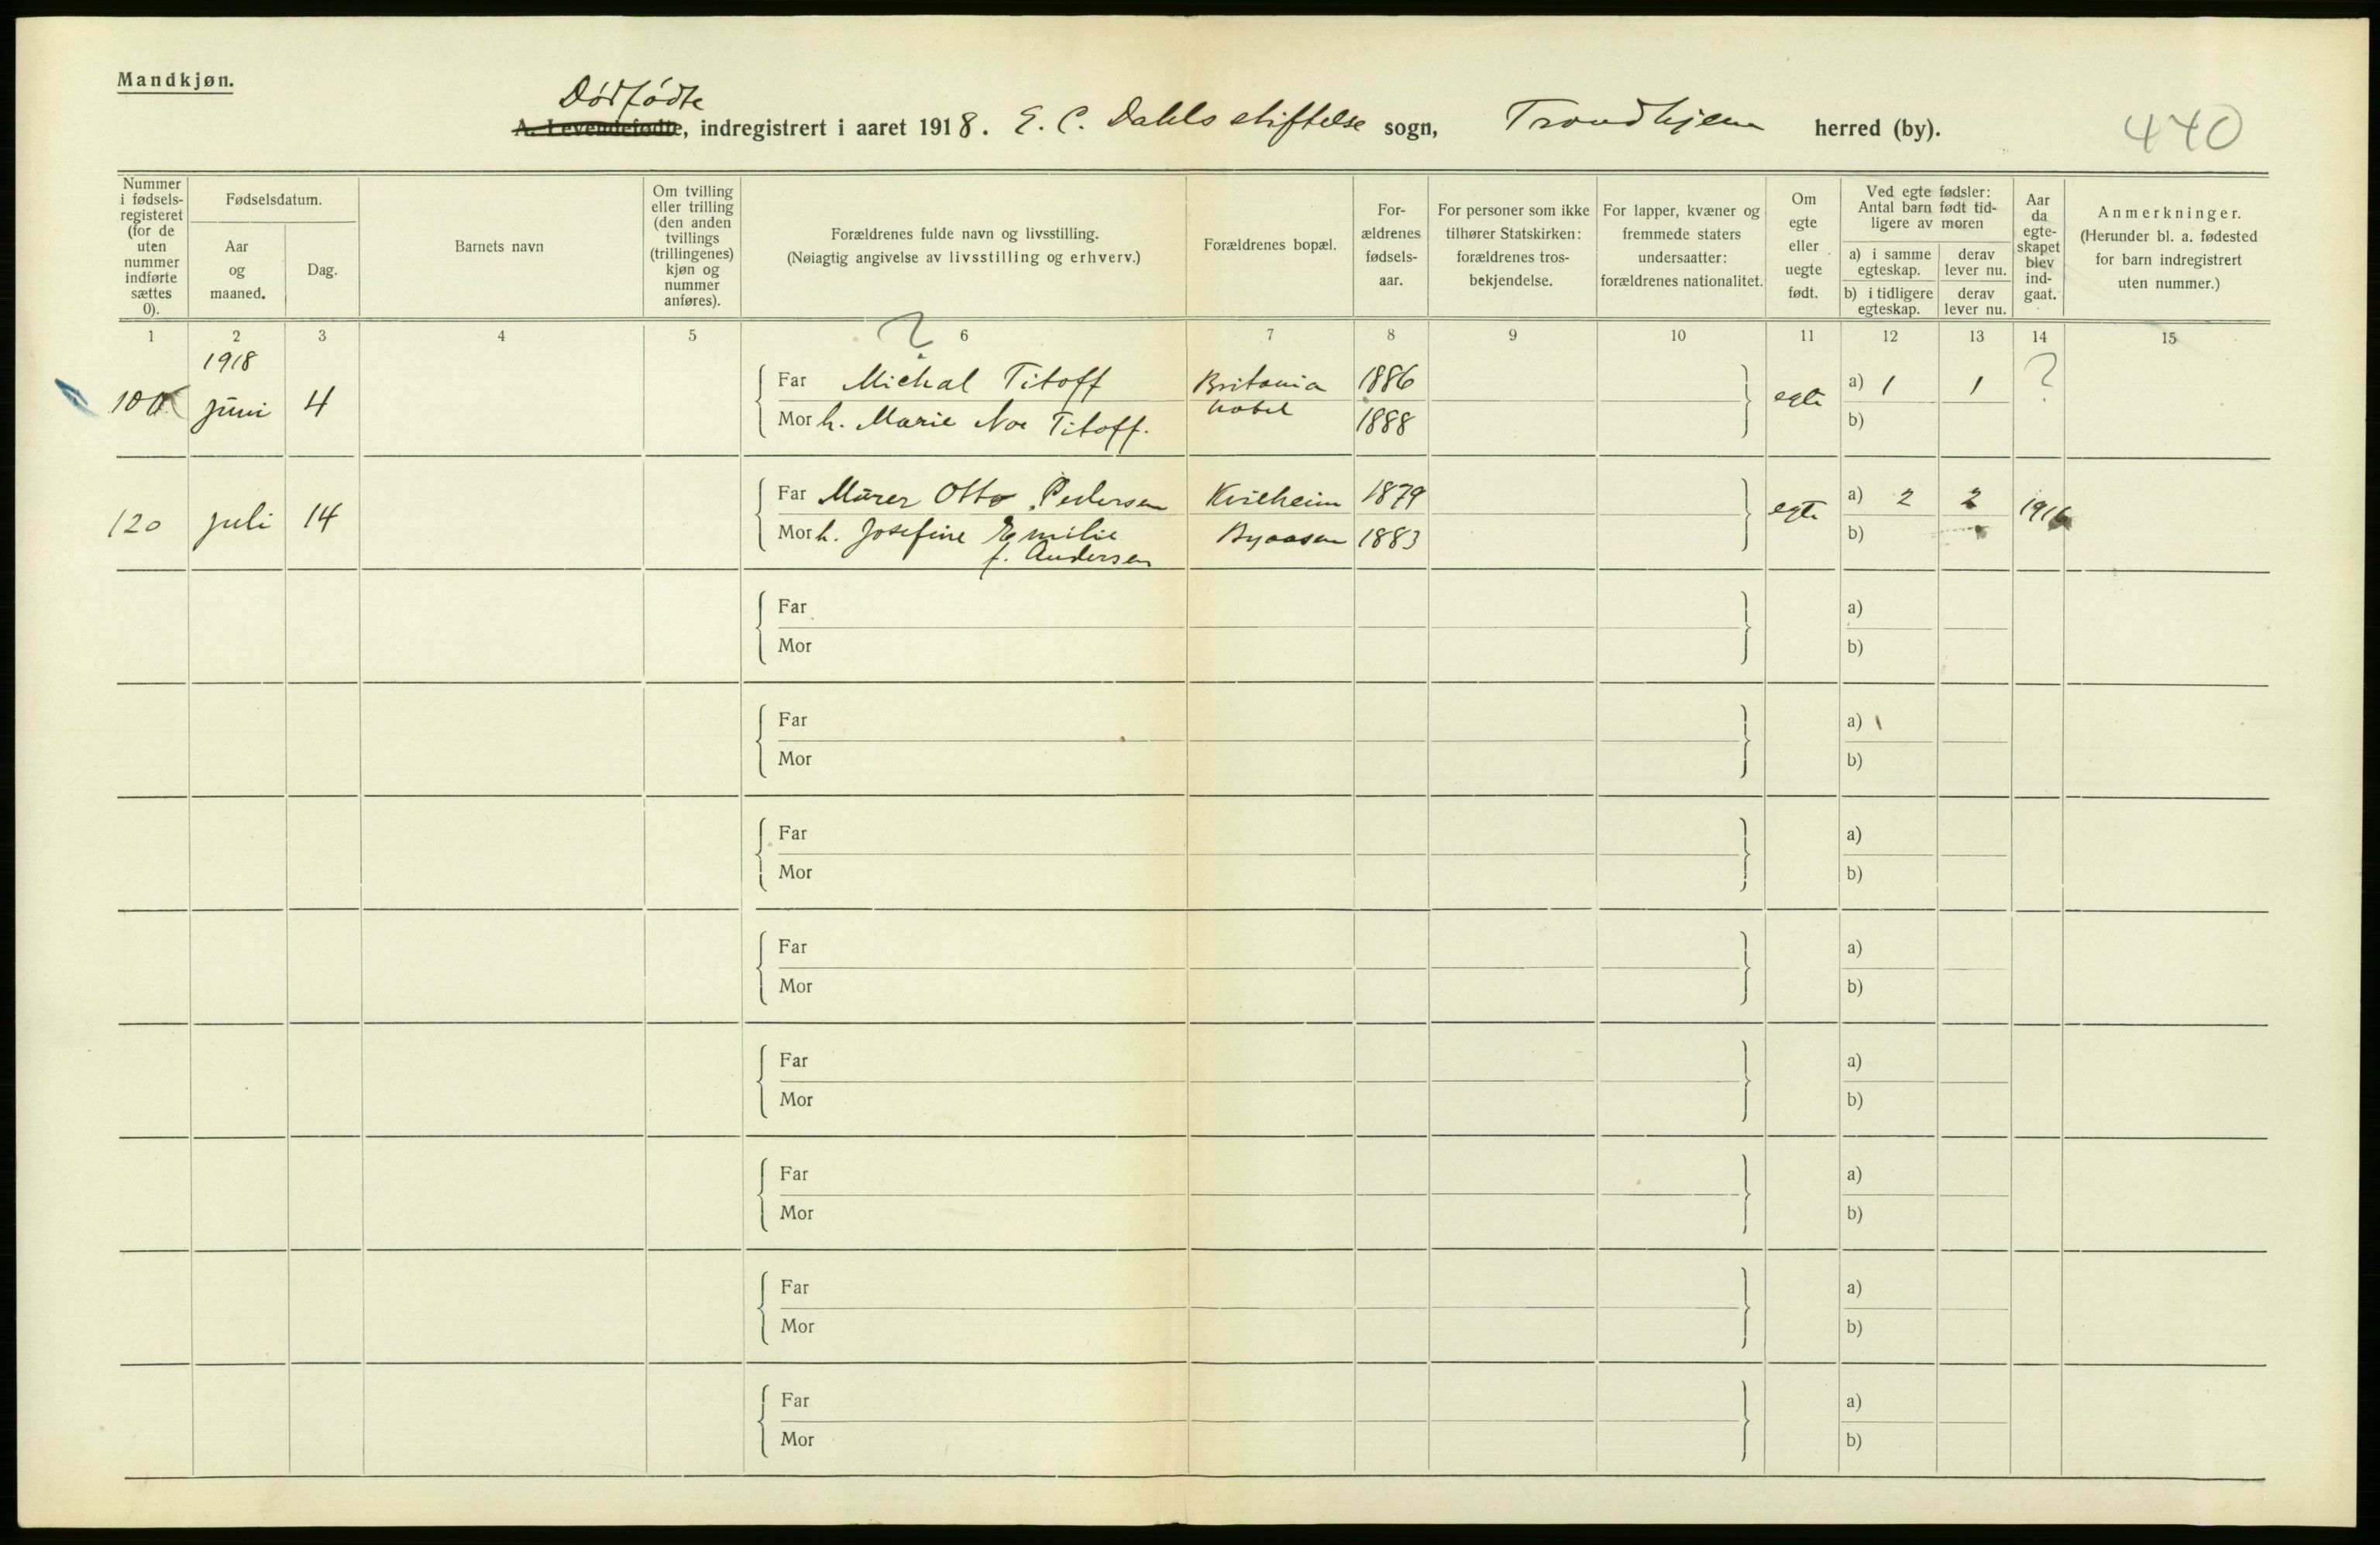 Mandkjøn.
Dødfødte
A. Levendefødte, indregistrert i aaret 1918. E. C. Dahls stiftelse sogn, Trondhjem herred (by).
440
Nummer i fødsels-registeret (for de uten nummer indførte sættes 0).
Fødselsdatum.
Aar og maaned.
Dag.
Barnets navn
Om tvilling eller trilling (den anden tvillings (trillingenes) kjøn og nummer anføres).
Forældrenes fulde navn og livsstilling.
(Nøiagtig angivelse av livsstilling og erhverv.)
Forældrenes bopæl.
For-ældrenes fødsels-aar.
For personer som ikke tilhører Statskirken: forældrenes tros-bekjendelse.
For lapper, kvæner og fremmede staters undersaatter: forældrenes nationalitet.
Om egte eller uegte født.
Ved egte fødsler: Antal barn født tid-ligere av moren
a) i samme egteskap.
derav lever nu.
b) i tidligere egteskap.
derav lever nu.
Aar da egte-skapet blev ind-gaat.
Anmerkninger.
(Herunder bl. a. fødested for barn indregistrert uten nummer.)
1 2 3 4 5 6 7 8 9 10 11 12 13 14 15
1918
?
100 juni 4 Far Michal Titoff Britania 1886 egte a) 1 1 ?
Mor h. Marie Noe Titoff. hotel 1888 b)
120 juli 14 Far Murer Otto Pedersen 1879 egte a) 2 2 1916
Mor h. Josefine Emilie Byaasen 1883 b)
f. Andersen
Far a)
Mor b)
Far a)
Mor b)
Far a)
Mor b)
Far a)
Mor b)
Far a)
Mor b)
Far a)
Mor b)
Far a)
Mor b)
Far a)
Mor b)